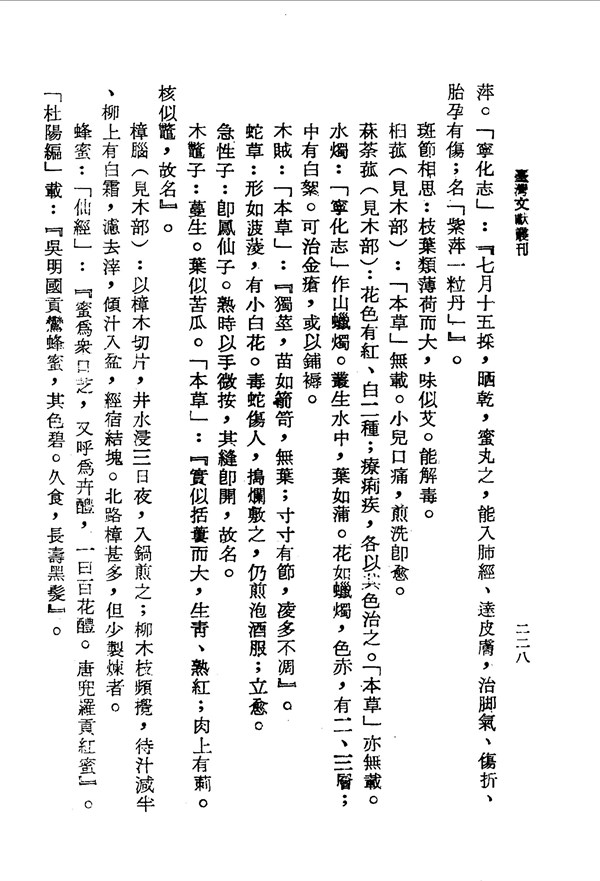 臺灣文獻叢刊
二二八
萍。「寧化志」：『七月十五採，晒乾，蜜丸之，能入肺經、達皮膚，治脚氣、傷折、
胎孕有傷；名「紫萍一粒丹」』。
斑節相思：枝葉類薄荷而大，味似艾。能解毒。
桕菰（見木部）：「本草」無載。小兒口痛，煎洗卽愈。
菻荼菰（見木部）：花色有紅、白二種；療痢疾，各以其色治之。「本草」亦無載。
水燭：「寧化志」作山蠟燭。叢生水中，葉如蒲。花如蠟燭，色赤，有二、三層；
中有白絮。可治金瘡，或以鋪褥。
木賊：「本草」：『獨莖，苗如箭笴，無葉；寸寸有節，凌冬不凋』。
蛇草：形如菠薐，有小白花。毒蛇傷人，搗爛敷之，仍煎泡酒服；立愈。
急性子：卽鳳仙子。熟時以手微按，其縫卽開，故名。
木鼈子：蔓生。葉似苦瓜。「本草」：『實似括蔞而大，生靑、熟紅；肉上有莿。
核似鼈，故名』。
樟腦（見木部）：以樟木切片，井水浸三日夜，入鍋煎之；柳木枝頻攪，待汁減半
、柳上有白霜，濾去滓，傾汁入盆，經宿結塊。北路樟甚多，但少製煉者。
蜂蜜：「仙經」：『蜜爲衆口芝，又呼爲卉醴，一曰百花醴。唐兜羅貢紅蜜』。
「杜陽編」載：『吳明國貢鸞蜂蜜，其色碧。久食，長壽黑髮』。